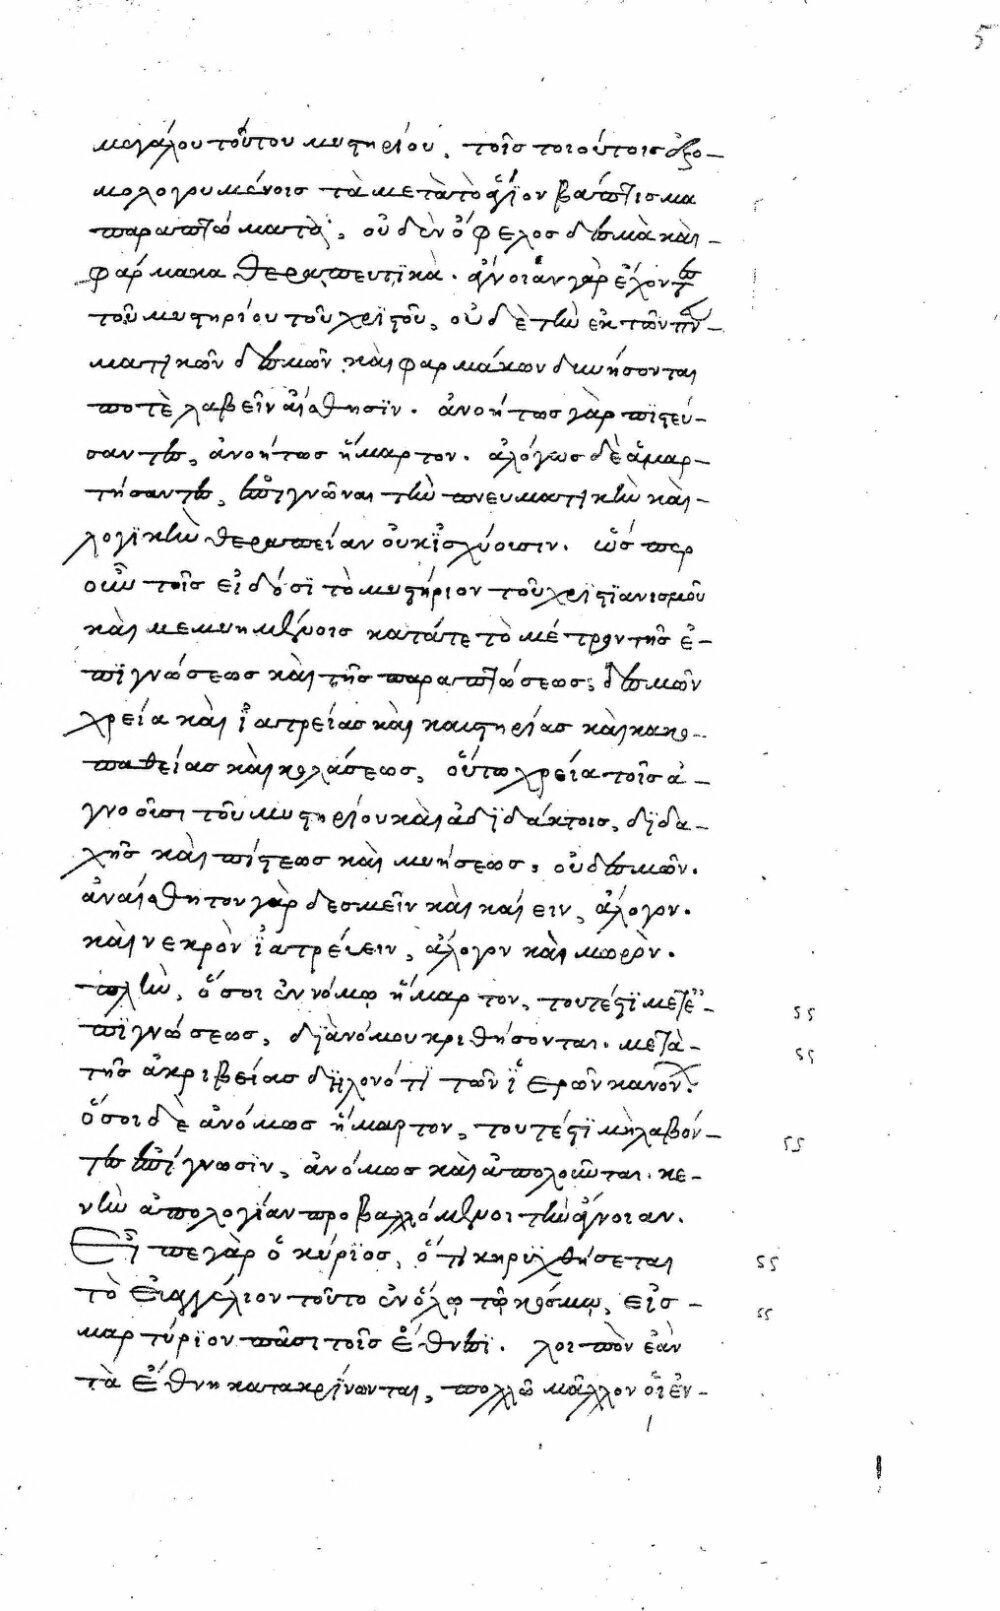 5
μεγάλου τούτου μυστηρίου, τοῖς τοιούτοις ἐξο-
μολογουμένοις τὰ μετὰ τὸ ἅγιον βάπτισμα
παραπτώματα, οὐδὲν ὄφελος δεσμὰ καὶ
φάρμακα θεραπευτικὰ. ἄγνοιαν γὰρ ἔχοντες
τοῦ μυστηρίου τοῦ χριστοῦ, οὐδὲ τὴν ἐκ τῶν πνευ-
ματικῶν δεσμῶν καὶ φαρμάκων δυνήσονται
ποτὲ λαβεῖν αἴσθησιν. ἀνοήτως γὰρ πιστεύ-
σαντες, ἀνοήτως ἥμαρτον. ἀλόγως δὲ ἁμαρ-
τήσαντες, ἐπιγνῶναι τὴν πνευματικὴν καὶ
λογικὴν θεραπείαν οὐκ ἰσχύουσιν. ὥσπερ
οὖν τοῖς εἰδόσι τὸ μυστήριον τοῦ χριστιανισμοῦ
καὶ μεμυημένοις κατά τε τὸ μέτρον τῆς ἐ-
πιγνώσεως καὶ τῆς παραπτώσεως, δεσμῶν
χρεία καὶ ἰατρείας καὶ καυστηρίας καὶ κακο-
παθείας καὶ κολάσεως, οὕτω χρεία τοῖς ἀ-
γνοοῦσι τοῦ μυστηρίου καὶ ἀδιδάκτοις, διδα-
χῆς καὶ πίστεως καὶ μυήσεως, οὐ δεσμῶν.
ἀναίσθητον γὰρ δεσμεῖν καὶ καίειν, ἄλογον.
καὶ νεκρὸν ἰατρεύειν, ἄλογον καὶ μωρὸν.
πλὴν, ὅσοι ἐν νόμῳ ἥμαρτον, τουτέστι μετ᾽ ἐ-
πιγνώσεως, διὰ νόμου κριθήσονται. μετὰ
τῆς ἀκριβείας δηλονότι τῶν ἱερῶν κανόνων.
ὅσοι δὲ ἀνόμως ἥμαρτον, τουτέστι μὴ λαβόν-
τες ἐπίγνωσιν, ἀνόμως καὶ ἀπολοῦνται. κε-
νὴν ἀπολογίαν προβαλλόμενοι τὴν ἄγνοιαν.
Εἶπε γὰρ ὁ κύριος, ὅτι κηρυχθήσεται
τὸ εὐαγγέλιον τοῦτο ἐν ὅλῳ τῷ κόσμῳ, εἰς
μαρτύριον πᾶσι τοῖς ἔθνεσι. λοιπὸν ἐὰν
τὰ ἔθνη κατακρίνωνται, πολλῷ μᾶλλον οἱ ἐν-